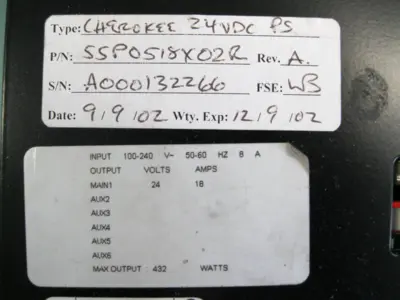 Type: CHEROKEE 24VDC PS
P/N: SSP0518X02R Rev. A.
S/N: A000132266 FSE: WB
Date: 9/9/02 Wty. Exp: 12/9/02
INPUT 100-240 V~ 50-60 HZ 8 A
OUTPUT VOLTS AMPS
MAIN1 24 18
AUX2
AUX3
AUX4
AUX5
AUX6
MAX OUTPUT : 432 WATTS